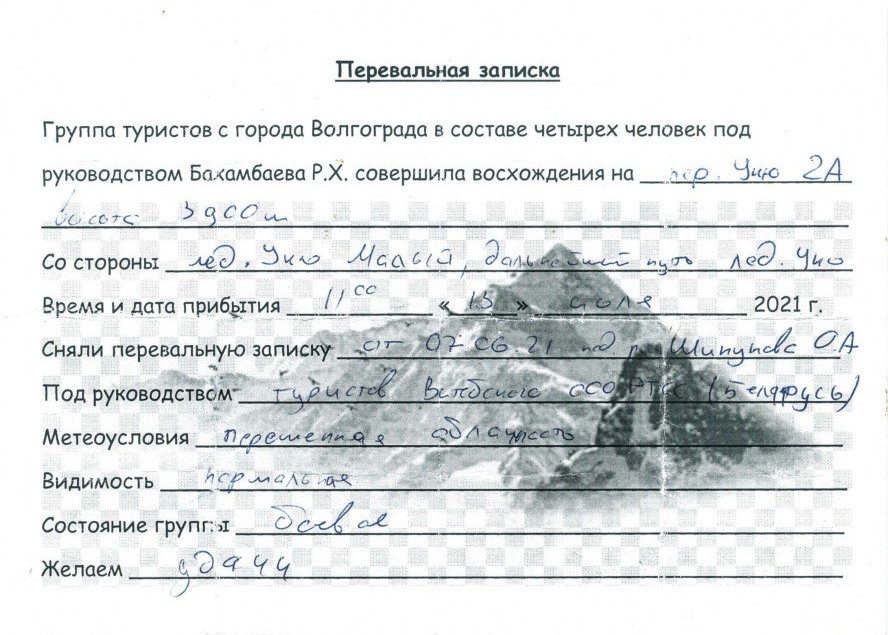 Перевальная записка
Группа туристов с города Волгограда в составе четырех человек под
руководством Бакамбаева Р.Х. совершила восхождения на пер. Укю 2А
высота 3900 м
Со стороны лед. Укю Малый, дальнейший путь лед. Укю
Время и дата прибытия 11 00 « 13 » июля 2021 г.
Сняли перевальную записку от 07 06 21 под р. Шипунова О.А
Под руководством туристов Витебского (Беларусь)
Метеоусловия переменная облачность
Видимость нормальная
Состояние группы боевое
Желаем удачи